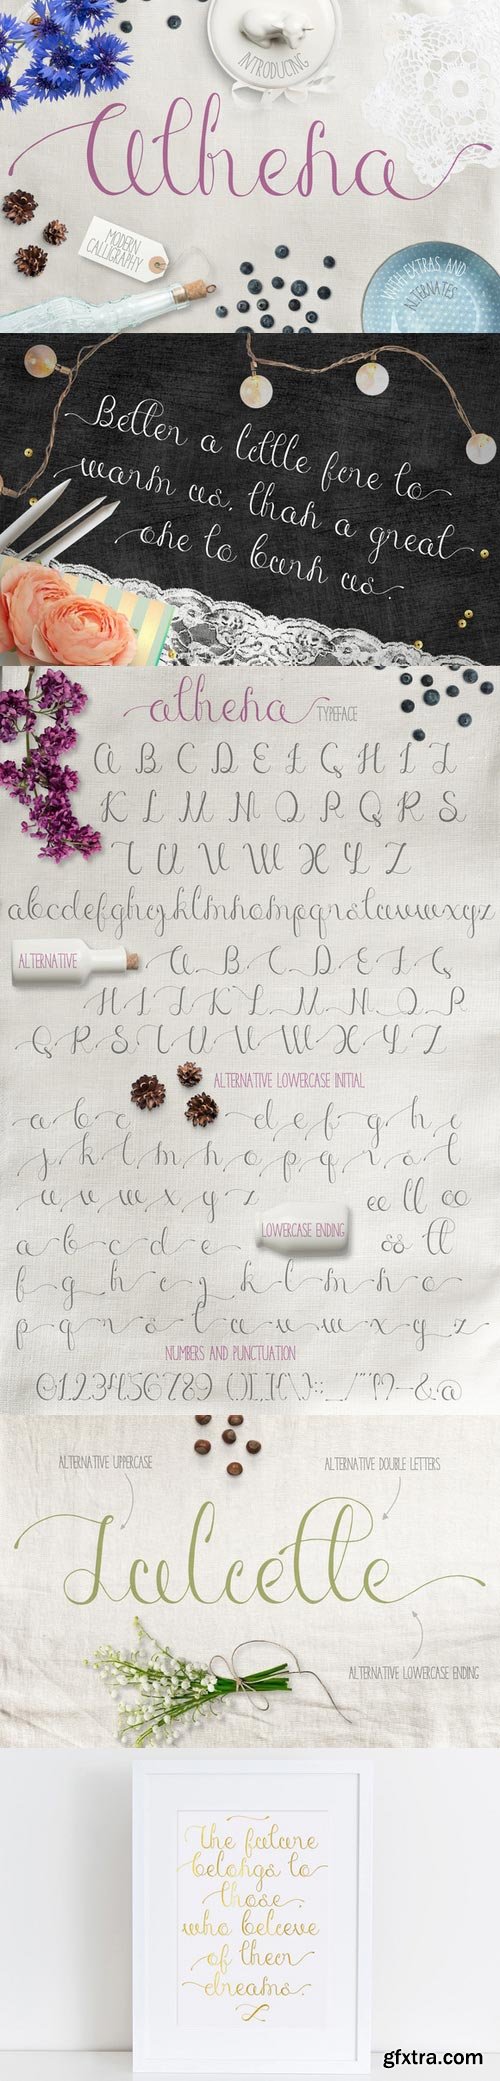 INTRODUCING
Athena
MODERN
CALLIGRAPHY
WITH EXTRAS AND
ALTERNATES
Better a little fire to
warm us, than a great
one to burn us.
athena TYPEFACE
A B C D E F G H I J
K L M N O P Q R S
T U V W X Y Z
abcdefghijklmnopqrstuvwxyz
ALTERNATIVE
A B C D E F G
H I J K L M N O P
Q R S T U V W X Y Z
ALTERNATIVE LOWERCASE INITIAL
a b c d e f g h i
j k l m n o p q r s t
u v w x y z ee ll oo
LOWERCASE ENDING
ss tt
a b c d e
f g h i j k l m n o
p q r s t u v w x y z
NUMBERS AND PUNCTUATION
0123456789
ALTERNATIVE UPPERCASE
ALTERNATIVE DOUBLE LETTERS
Juliette
ALTERNATIVE LOWERCASE ENDING
the future
belongs to
those,
who believe
of their
dreams.
gfxtra.com